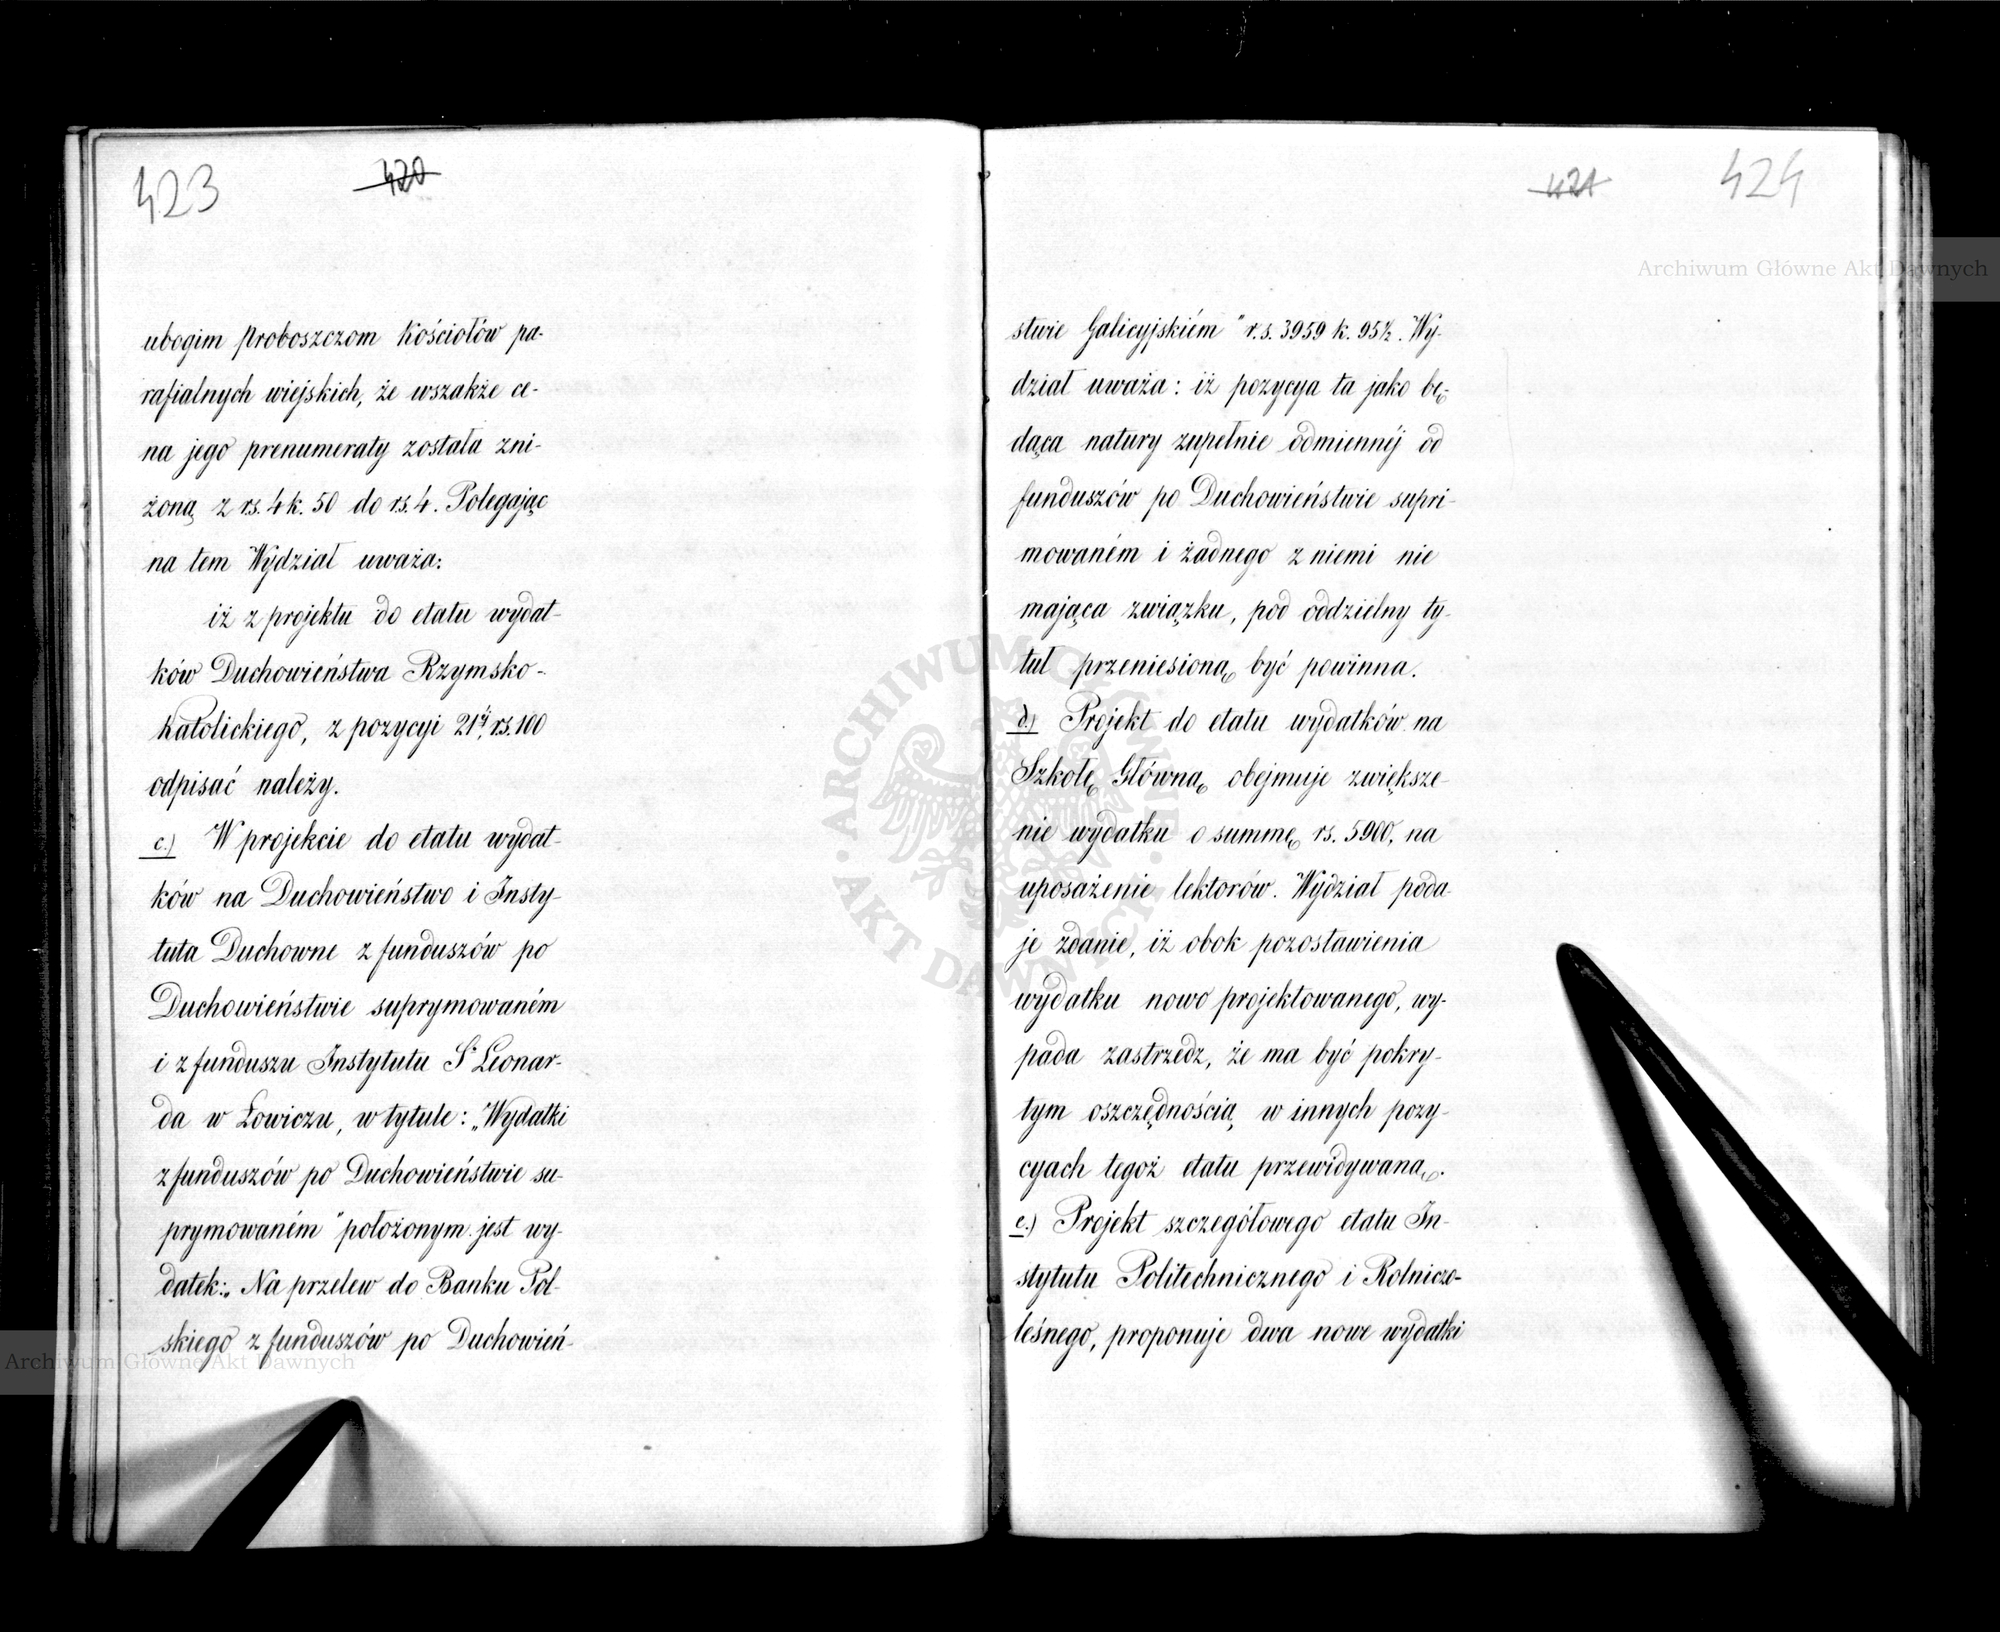 423
420
ubogim Proboszczom Kościołów pa-
rafialnych wiejskich, że wszakże ce-
na jego prenumeraty została zni-
żoną z rs. 4 k. 50 do rs. 4. Polegając
na tem Wydział uważa:
iż z projektu do etatu wydat-
ków Duchowieństwa Rzymsko-
Katolickiego, z pozycyi 21éj, rs. 100
odpisać należy.
c.) W projekcie do etatu wydat-
ków na Duchowieństwo i Insty-
tuta Duchowne z funduszów po
Duchowieństwie suprymowaném
i z funduszu Instytutu Sº Leonar-
da w Łowiczu, w tytule: „Wydatki
z funduszów po Duchowieństwie su-
prymowaném" położonym jest wy-
datek: „Na przelew do Banku Pol-
skiego z funduszów po Duchowień-
421
424
stwie Galicyjskiém" r.s. 3959 k. 95½. Wy-
dział uważa: iż pozycya ta jako bę-
dąca natury zupełnie odmiennéj od
funduszów po Duchowieństwie supri-
mowaném i żadnego z niemi nie
mająca związku, pod oddzielny ty-
tuł przeniesioną być powinna.
d.) Projekt do etatu wydatków na
Szkołę Główną obejmuje zwiększe-
nie wydatku o summę rs. 5900, na
uposażenie lektorów. Wydział poda-
je zdanie, iż obok pozostawienia
wydatku nowo projektowanego, wy-
pada zastrzedz, że ma być pokry-
tym oszczędnością w innych pozy-
cyach tegoż etatu przewidywaną.
e.) Projekt szczegółowego etatu In-
stytutu Politechnicznego i Rolniczo-
leśnego, proponuje dwa nowe wydatki
Archiwum Główne Akt Dawnych
ARCHIWUM GŁÓWNE · AKT DAWNYCH ·
Archiwum Główne Akt Dawnych